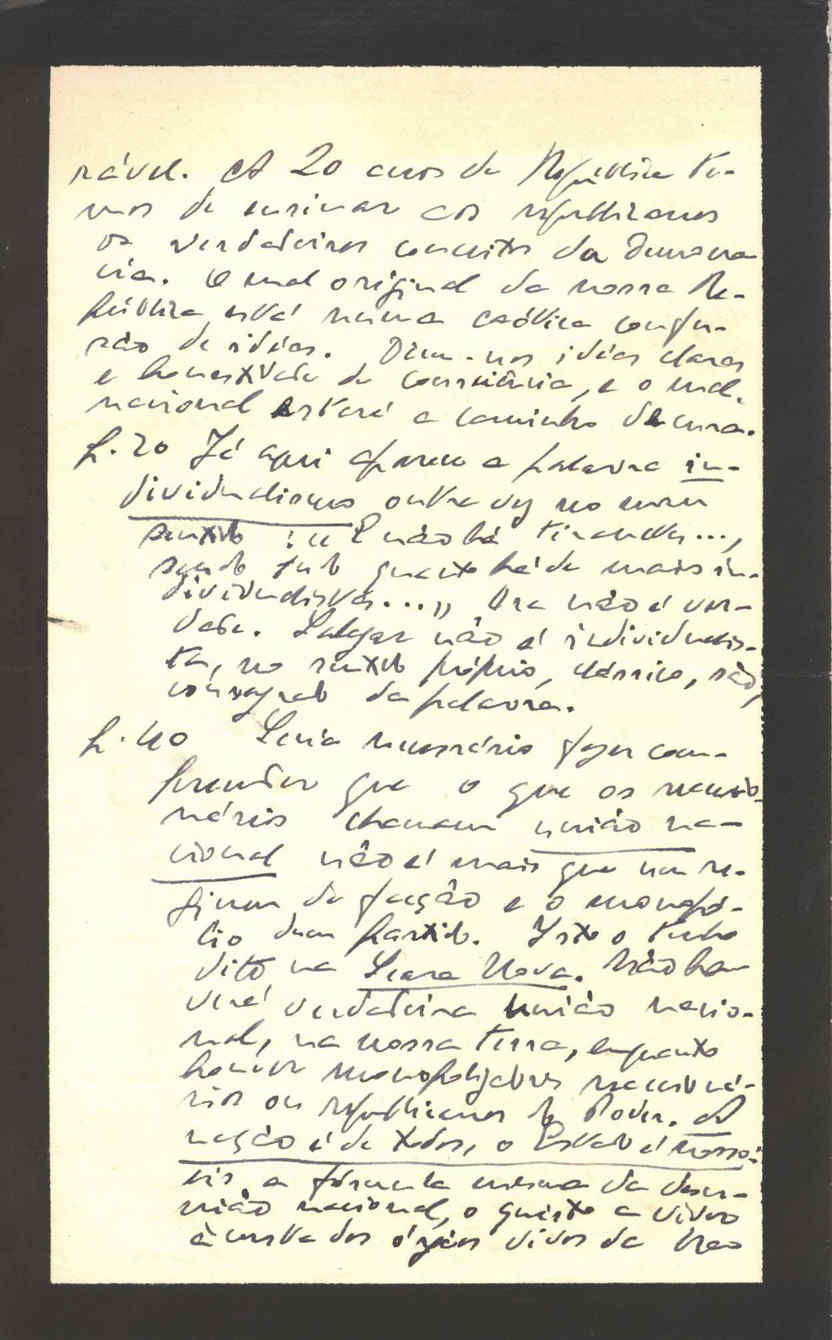 rável. A 20 anos da República te-
mos de ensinar aos republicanos
os verdadeiros conceitos da Democra
cia. O mal original da nossa Re-
pública está numa caótica confu-
são de idéas. Dêem-nos idéas claras
e honestidade de consciência, e o mal
nacional estará a caminho de cura.
p. 20 Já aqui aparece a palavra in-
dividualismo outra vez no mau
sentido: « E não há tiranetes...,
sendo tudo quanto há de mais in-
dividualista...» Ora não é ver-
dade. Salazar não é individualis-
ta, no sentido próprio, clássico, são,
consagrado da palavra.
p. 40 Seria necessário fazer com-
preender que o que os reaccio-
nários chamam união na-
cional não é mais que um re-
gimen de facção e o monopó-
lio dum partido. Isto o tenho
dito na Seara Nova. Não ha-
verá verdadeira união nacio-
nal, na nossa terra, enquanto
houver monopolizadores reaccioná-
rios ou republicanos do Poder. A
nação é de todos, o Estado é nosso:
eis a fórmula mesma da desu-
nião nacional, o quisto a viver
à custa dos órgãos vivos da